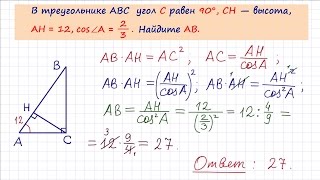 В треугольнике ABC угол C равен 90°, CH — высота,
AH = 12, cos∠A = 2/3. Найдите AB.
B
H
12
A
C
AB·AH = AC², AC = AH/cosA
AB·AH = (AH/cosA)², AB·AH = AH²/cos²A
AB = AH/cos²A = 12/(2/3)² = 12 : 4/9 =
= 12³ · 9/4₁ = 27.
Ответ: 27.